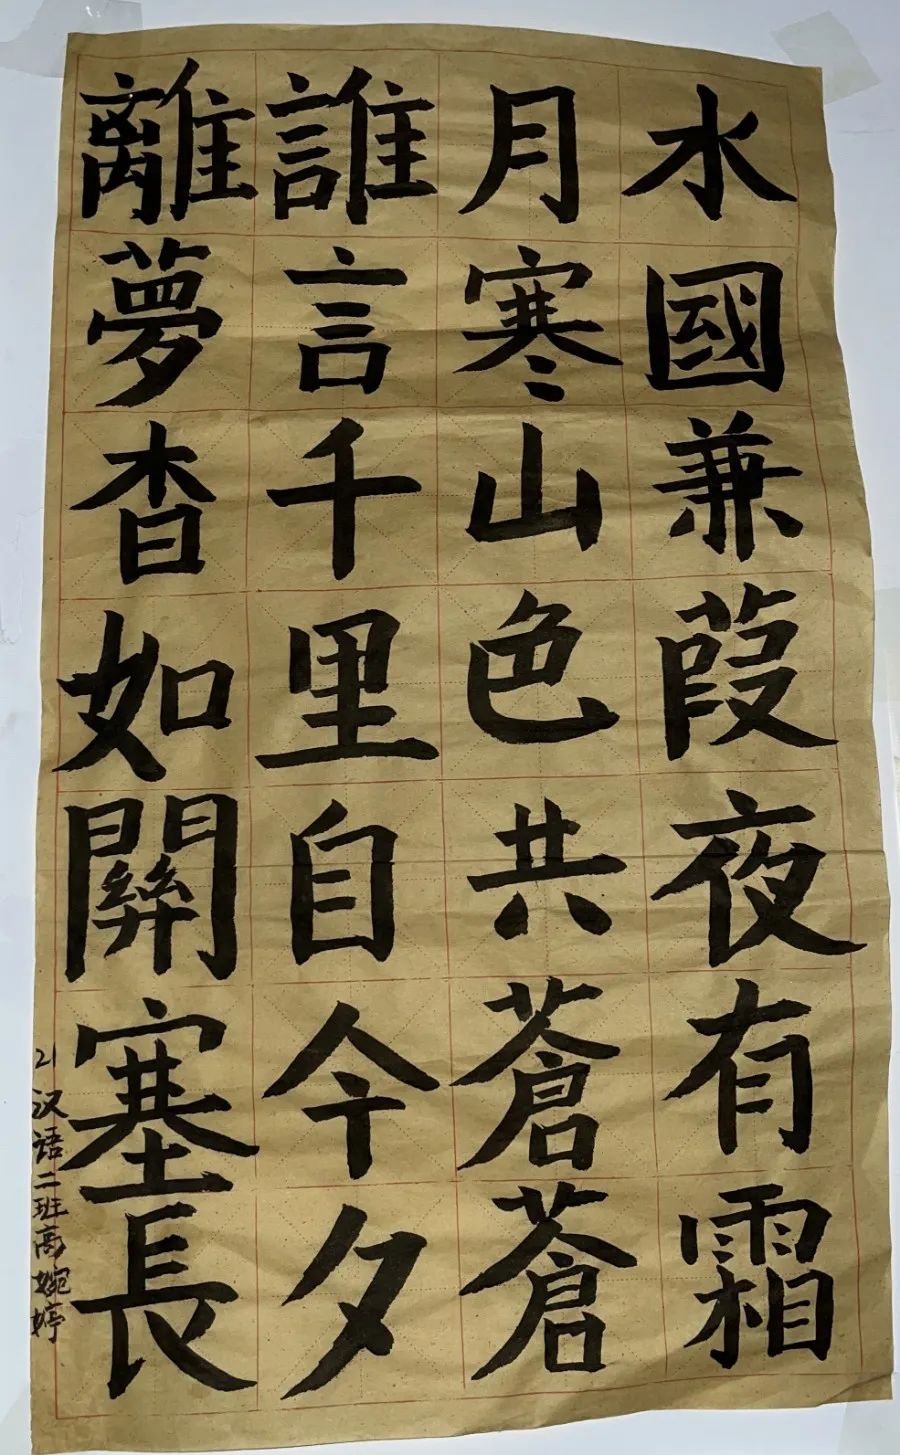 水國兼葭夜有霜
月寒山色共蒼蒼
誰言千里自今夕
離夢杳如關塞長
21汉语二班高婉婷